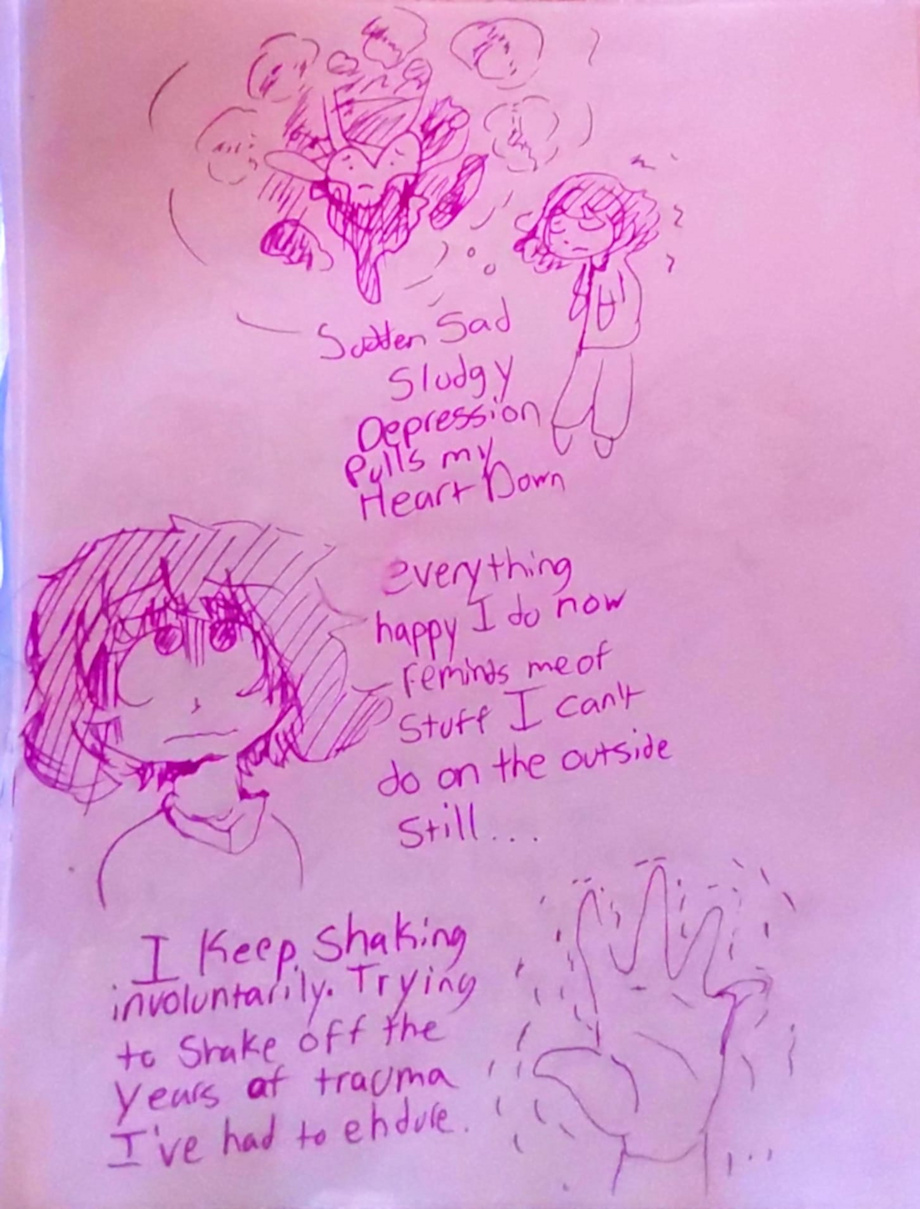 Sudden Sad
Sludgy
Depression
Pulls my
Heart Down
everything
happy I do now
reminds me of
Stuff I can't
do on the outside
Still...
I Keep Shaking
involuntarily. Trying
to Shake off the
years of trauma
I've had to endure.